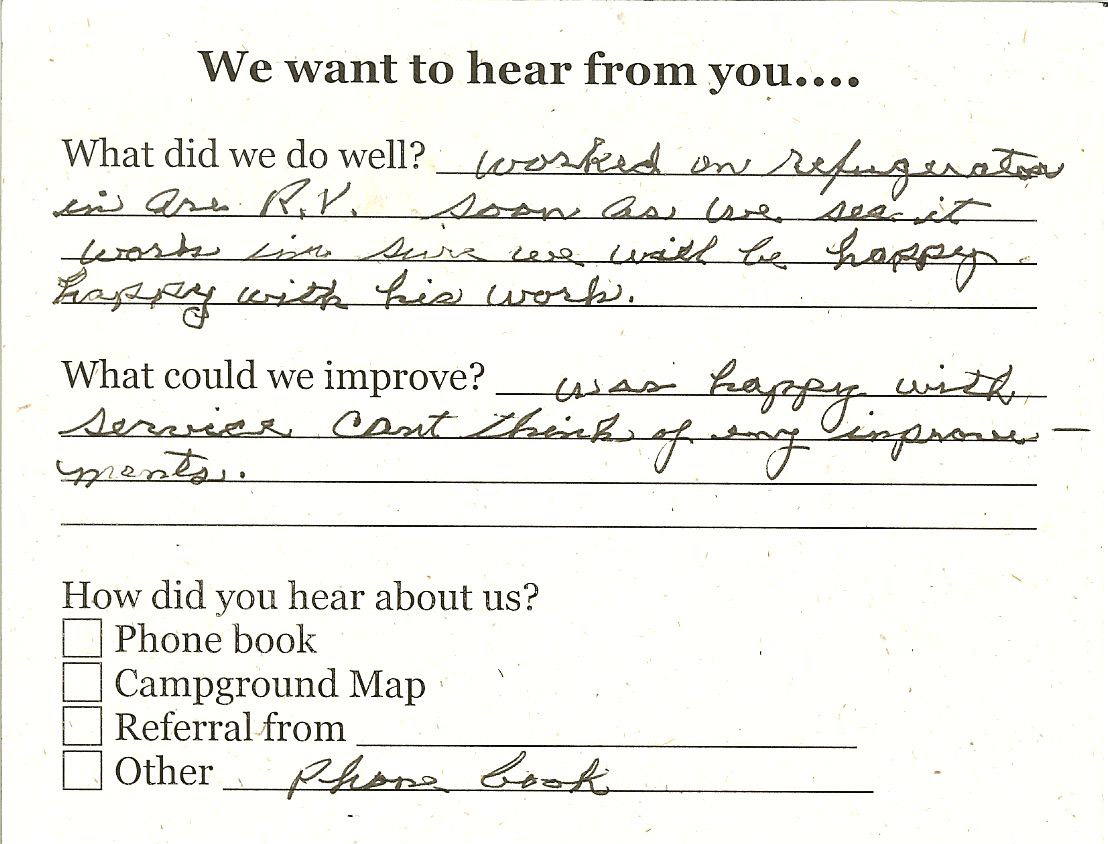 We want to hear from you....
What did we do well? worked on refugerator
in are R.V. soon as we see it
work im sure we will be happy
happy with his work.
What could we improve? was happy with
service cant think of any improve-
ments.
How did you hear about us?
Phone book
Campground Map
Referral from
Other Phone book